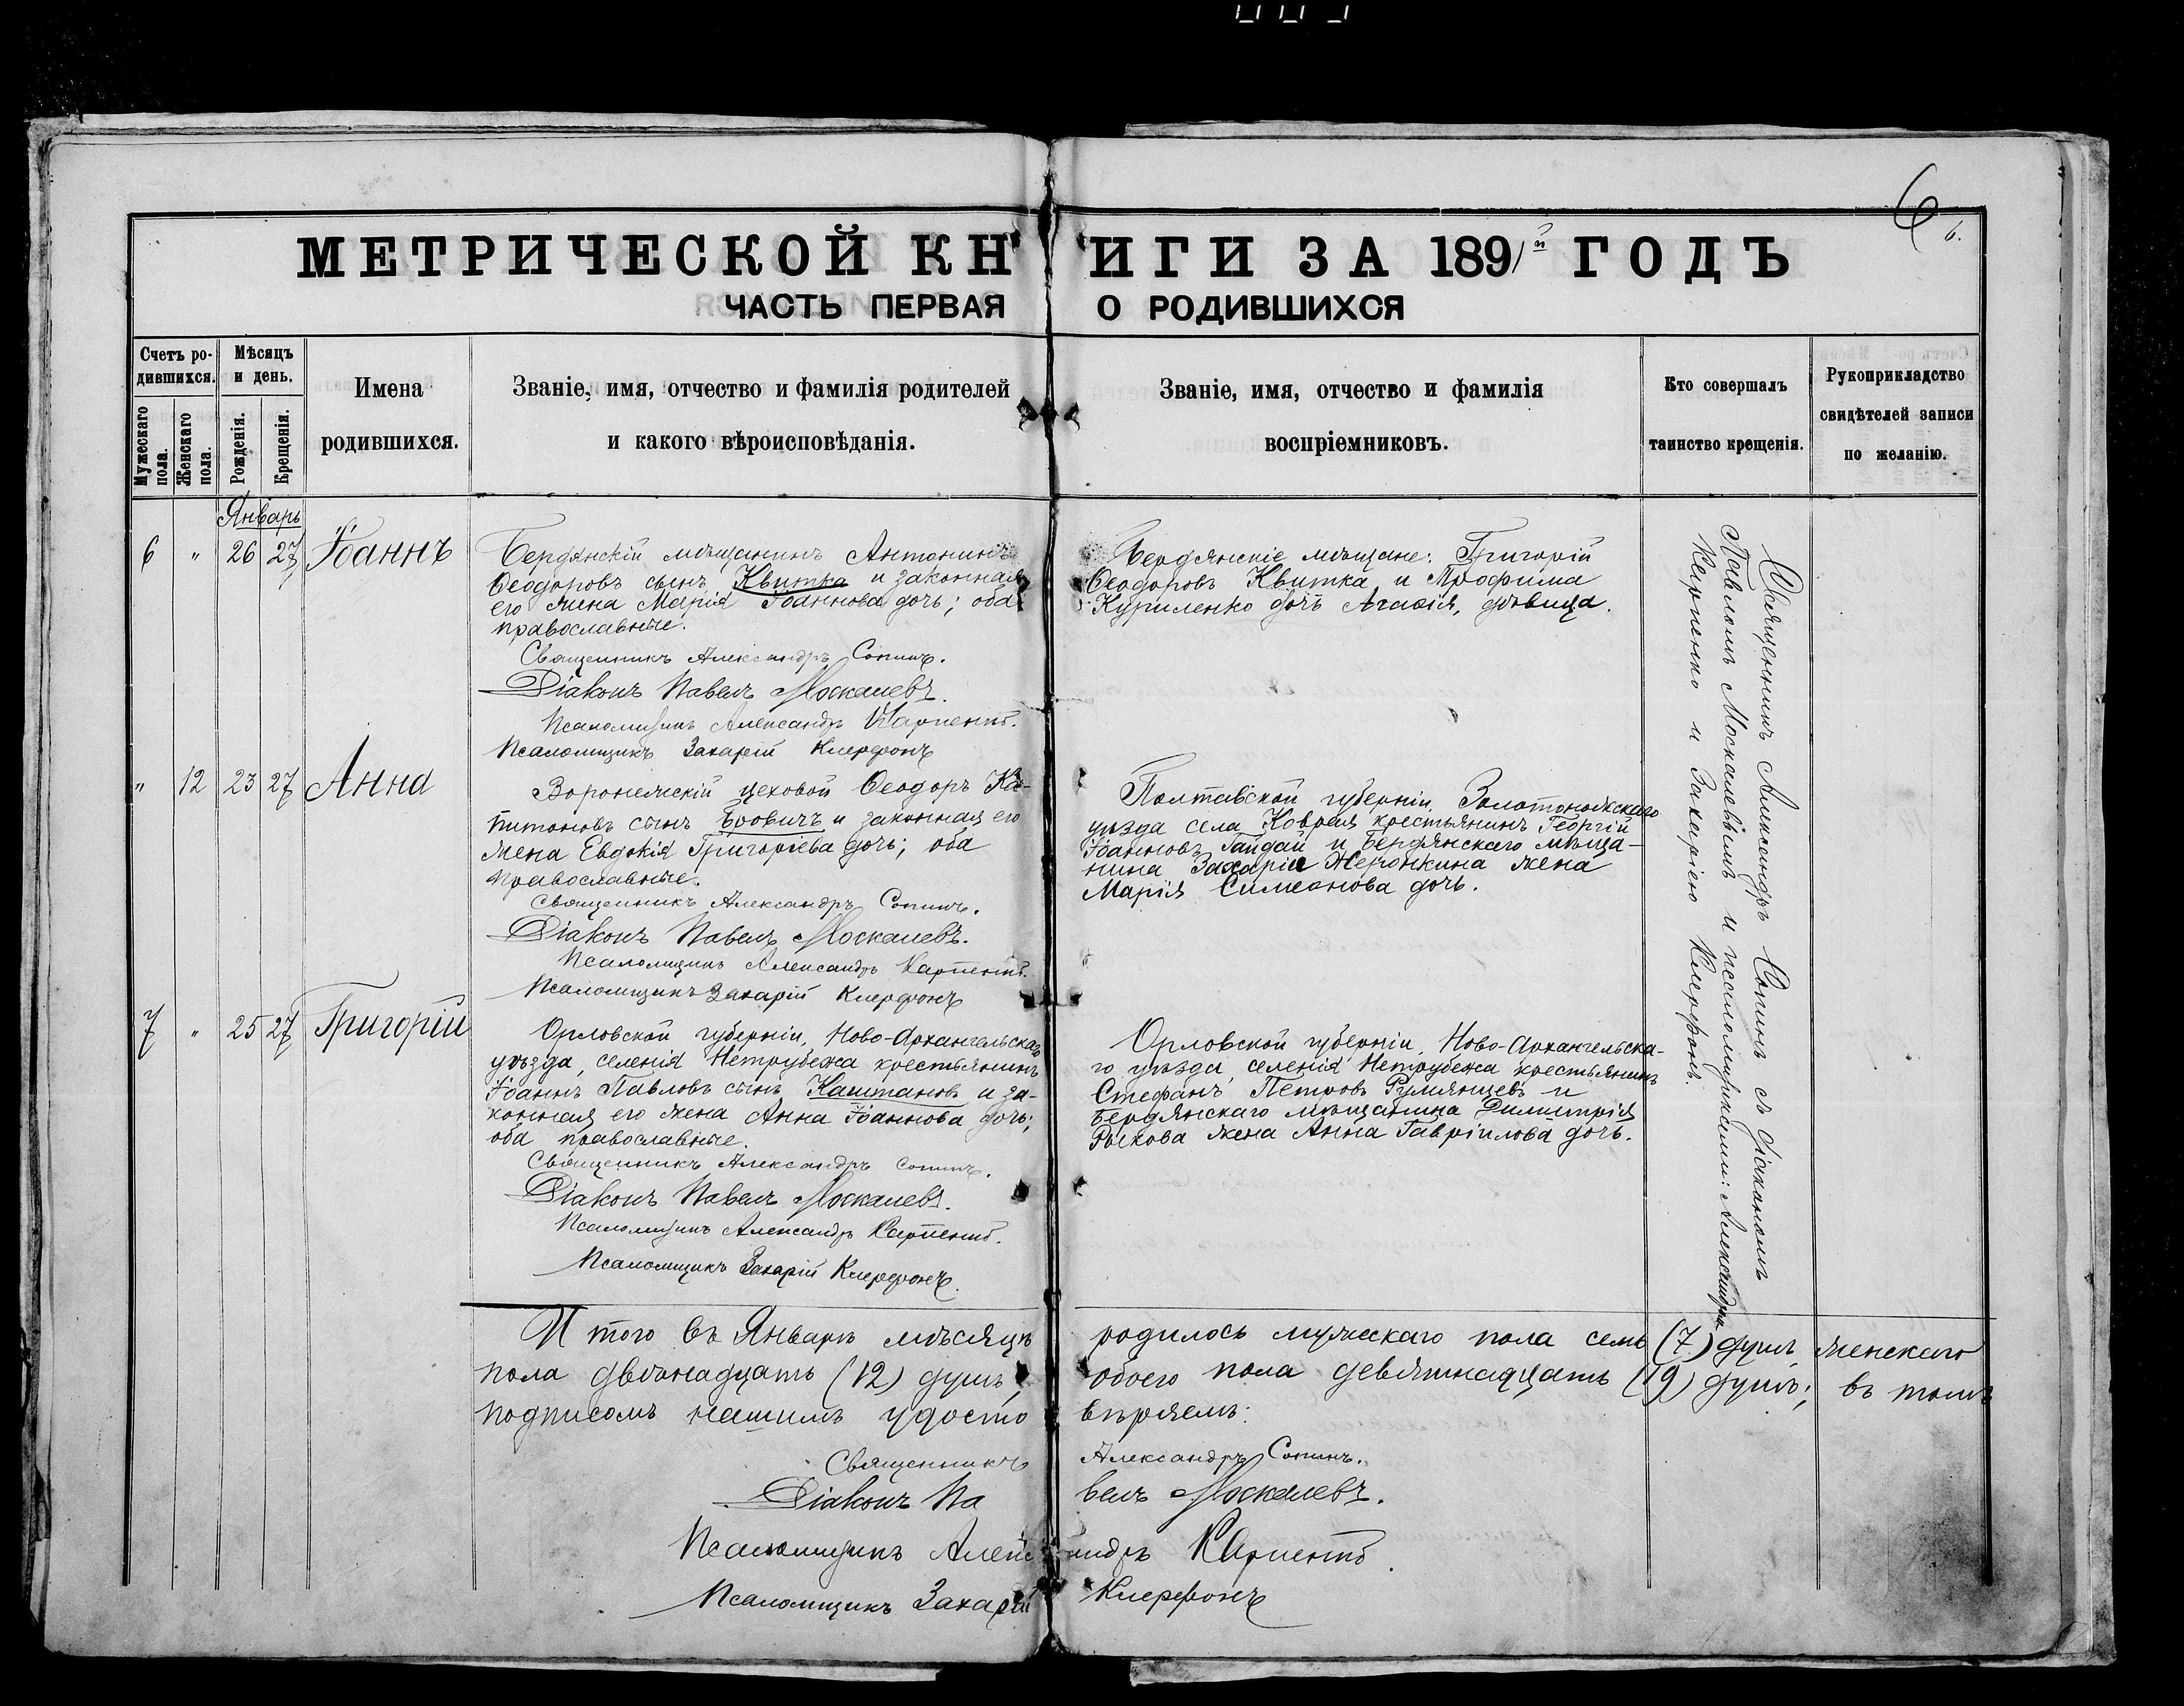 6
6.
МЕТРИЧЕСКОЙ КНИГИ ЗА 1891й ГОДЪ
ЧАСТЬ ПЕРВАЯ О РОДИВШИХСЯ
Счетъ ро-
дившихся.
Мужескаго
пола.
Женскаго
пола.
Мѣсяцъ
и день.
Рожденія.
Крещенія.
Имена
родившихся.
Званіе, имя, отчество и фамилія родителей
и какого вѣроисповѣданія.
Званіе, имя, отчество и фамилія
воспріемниковъ.
Кто совершалъ
таинство крещенія.
Рукоприкладство
свидѣтелей записи
по желанію.
Январь
6 " 26 27 Іоаннъ
Бердянскій мѣщанинъ Антонинъ
Ѳеодоровъ сынъ Квитка и законная
его жена Марія Іоаннова дочь; оба
православные.
Священникъ Александръ Сопинъ.
Діаконъ Павелъ Москалевъ.
Псаломщикъ Александръ Карпенко.
Псаломщикъ Захарій Клерфонъ
Бердянскіе мѣщане: Григорій
Ѳеодоровъ Квитка и Трофима
Куриленко дочь Агафія, дѣвица.
" 12 23 27 Анна
Воронежскій цеховой Ѳеодоръ Ка-
питоновъ сынъ Бровичъ и законная его
жена Евдокія Григоріева дочь; оба
православные.
Священникъ Александръ Сопинъ.
Діаконъ Павелъ Москалевъ.
Псаломщикъ Александръ Карпенко.
Псаломщикъ Захарій Клерфонъ
Полтавской губерніи, Золотоношскаго
уѣзда села Коврая крестьянинъ Георгій
Іоанновъ Гайдай и Бердянскаго мѣща-
нина Захаріи Жеронкина жена
Марія Симеонова дочь.
7 " 25 27 Григорій
Орловской губерніи, Ново-Архангельскаго
уѣзда, селенія Нетрубежа крестьянинъ
Іоаннъ Павловъ сынъ Каштановъ и за-
конная его жена Анна Іоаннова дочь;
оба православные.
Священникъ Александръ Сопинъ.
Діаконъ Павелъ Москалевъ.
Псаломщикъ Александръ Карпенко.
Псаломщикъ Захарій Клерфонъ.
Орловской губерніи, Ново-Архангельска-
го уѣзда, селенія Нетрубежа крестьянинъ
Стефанъ Петровъ Румянцевъ и
Бердянскаго мѣщанина Димитрія
Рыкова жена Анна Гавріилова дочь.
Священникъ Александръ Сопинъ съ діакономъ
Павломъ Москалевымъ и псаломщиками: Александромъ
Карпенко и Захаріею Клерфонъ.
И того въ Январѣ мѣсяцѣ родилось мужескаго пола семь (7) душъ, женскаго
пола двѣнадцать (12) душъ, обоего пола девятнадцать (19) душъ; въ томъ
подписомъ нашимъ удостовѣряемъ:
Священникъ Александръ Сопинъ.
Діаконъ Павелъ Москалевъ.
Псаломщикъ Александръ Карпенко.
Псаломщикъ Захарій Клерфонъ